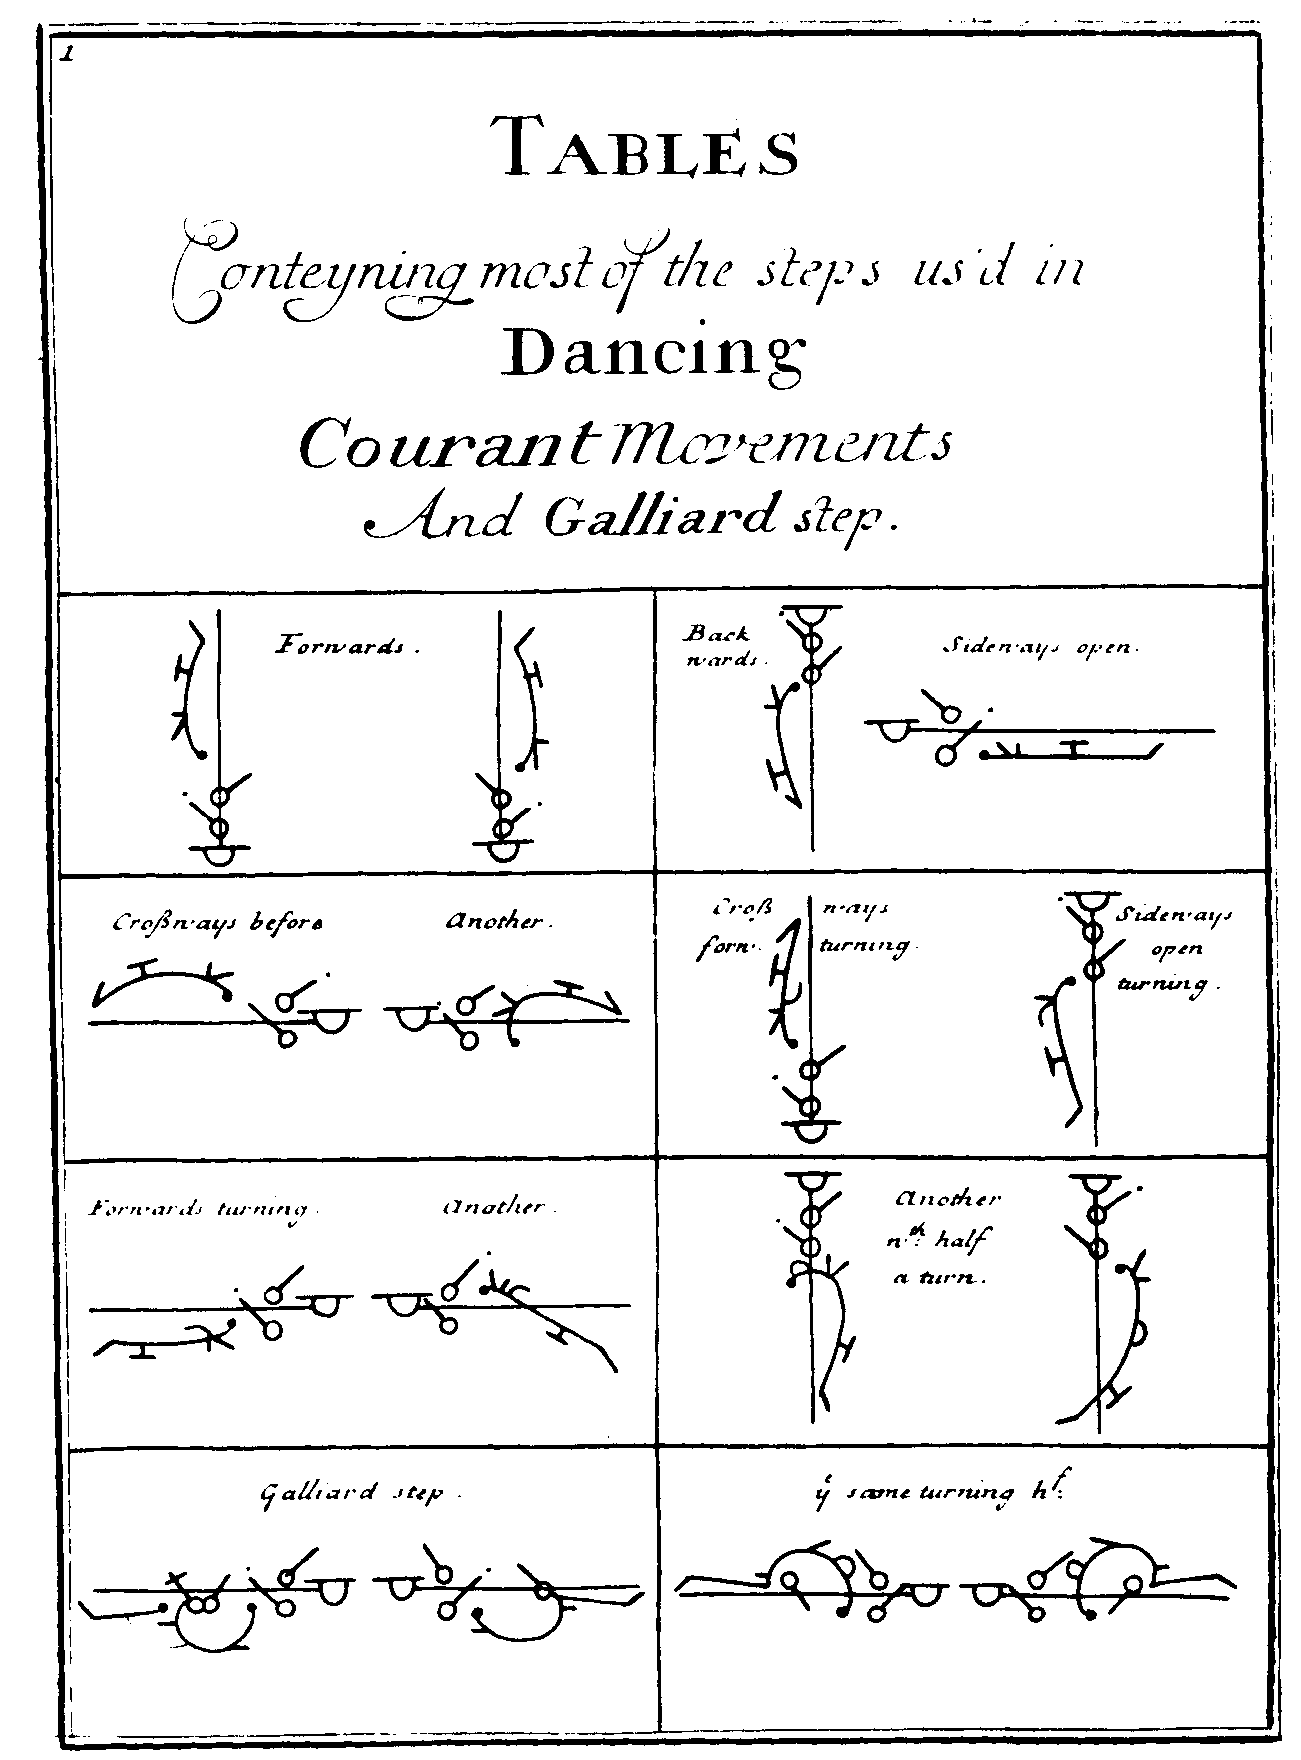 1
TABLES
Conteyning most of the steps us'd in
Dancing
Courant Movements
And Galliard step.
Forwards.
Back
wards.
Sideways open.
Croßways before
Another.
Croß ways
forw. turning.
Sideways
open
turning.
Forwards turning.
Another.
Another
wth. half
a turn.
Galliard step.
ye same turning hf: